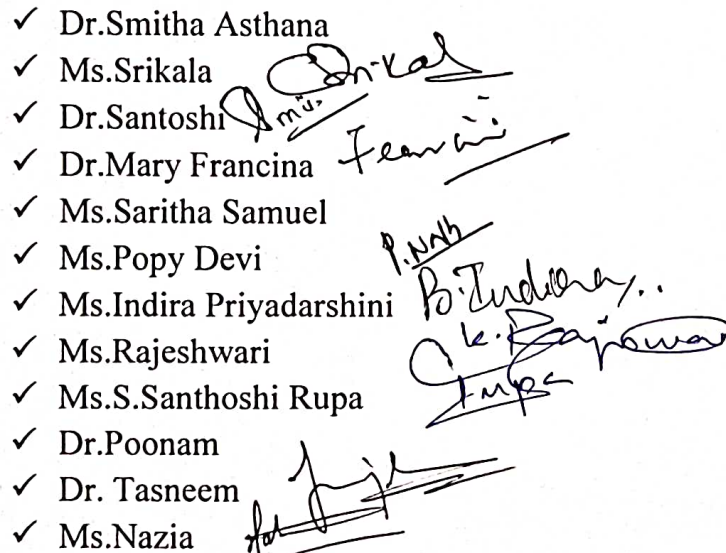 ✓ Dr.Smitha Asthana
✓ Ms.Srikala
✓ Dr.Santoshi
✓ Dr.Mary Francina
✓ Ms.Saritha Samuel
✓ Ms.Popy Devi
✓ Ms.Indira Priyadarshini B.Indira
✓ Ms.Rajeshwari
✓ Ms.S.Santhoshi Rupa
✓ Dr.Poonam
✓ Dr. Tasneem
✓ Ms.Nazia